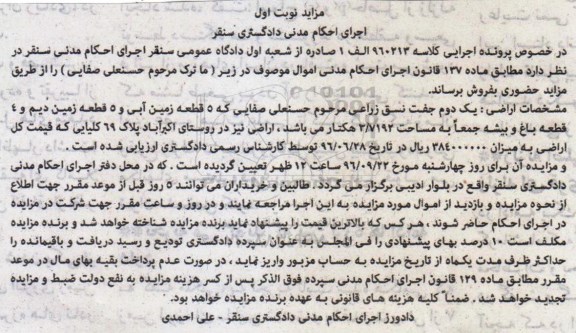 مزاید نوبت اول
اجرای احکام مدنی دادگستری سنقر
در خصوص پرونده اجرایی کلاسه ۹۶۰۲۱۳ الف ۱ صادره از شعبه اول دادگاه عمومی سنقر اجرای احکام مدنی سنقر در
نظر دارد مطابق ماده ۱۳۷ قانون اجرای احکام مدنی اموال موصوف در زیر ( ما ترک مرحوم حسنعلی صفایی ) را از طریق
مزاید حضوری بفروش برساند.
مشخصات اراضی : یک دوم جفت نسق زراعی مرحوم حسنعلی صفایی که ۵ قطعه زمین آبی و ۵ قطعه زمین دیم و ۴
قطعه باغ و بیشه جمعاً به مساحت ۳/۷۱۹۲ هکتار می باشد . اراضی نیز در روستای اکبرآباد پلاک ۶۹ کلیایی که قیمت کل
اراضی به میزان ۳۸۴۰۰۰۰۰۰ ریال در تاریخ ۹۶/۰۶/۲۸ توسط کارشناس رسمی دادگستری ارزیابی شده است .
و مزایده آن برای روز چهارشنبه مورخ ۹۶/۰۹/۲۲ ساعت ۱۲ ظهر تعیین گردیده است . که در محل دفتر اجرای احکام مدنی
دادگستری سنقر واقع در بلوار ادیبی برگزار می گردد . طالبین و خریداران می توانند ۵ روز قبل از موعد مقرر جهت اطلاع
از نحوه مزایده و بازدید از اموال مورد مزایده به این اجرا مراجعه نمایند و در روز و ساعت مقرر جهت شرکت در مزایده
در اجرای احکام حاضر شوند . هر کس که بالاترین قیمت را پیشنهاد نماید برنده مزایده شناخته خواهد شد و برنده مزایده
مکلف است ۱۰ درصد بهای پیشنهادی را فی المجلس به عنوان سپرده دادگستری تودیع و رسید دریافت و باقیمانده را
حداکثر ظرف مدت یکماه از تاریخ مزایده به حساب مزبور واریز نماید ، در صورت عدم پرداخت بقیه بهای مال در موعد
مقرر مطابق ماده ۱۲۹ قانون اجرای احکام مدنی سپرده فوق الذکر پس از کسر هزینه مزایده به نفع دولت ضبط و مزایده
تجدید خواهد شد . ضمناً کلیه هزینه های قانونی به عهده برنده مزایده خواهد بود.
دادورز اجرای احکام مدنی دادگستری سنقر - علی احمدی